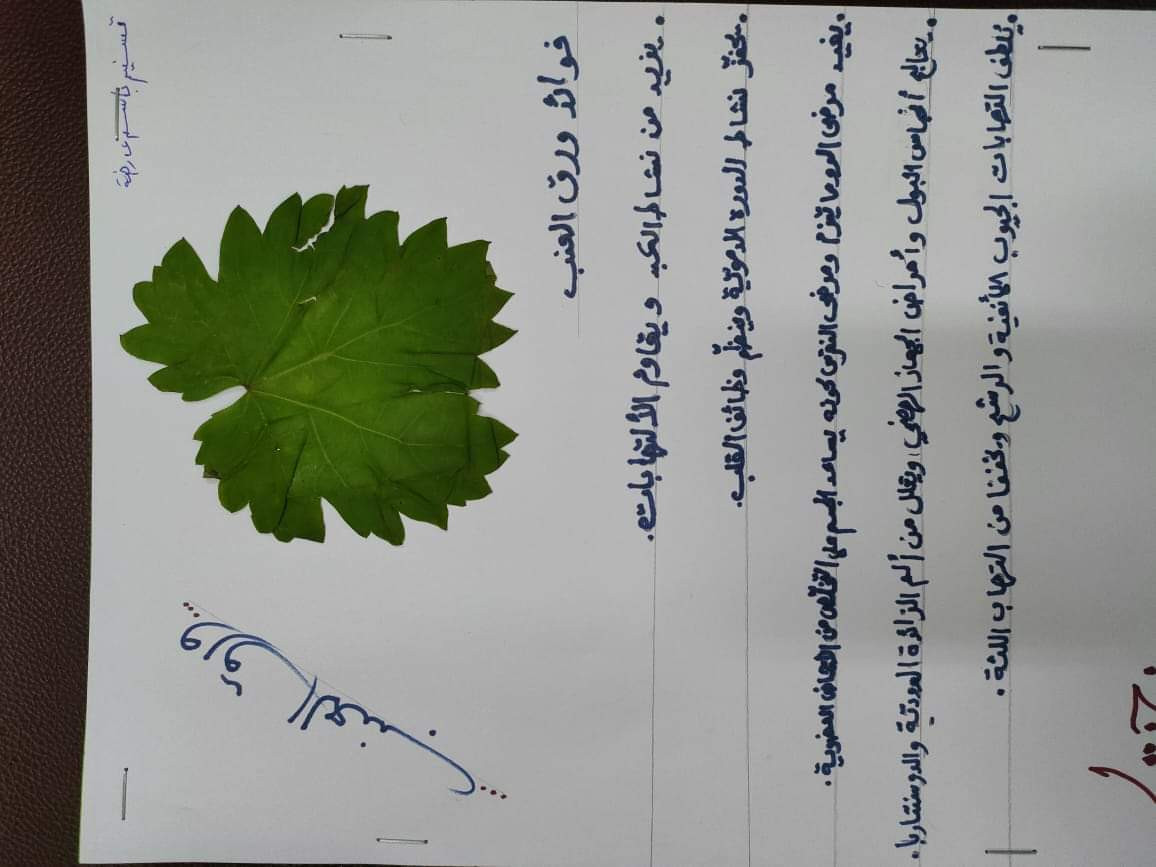 ورق العنب
فوائد ورق العنب
. يزيد من نشاط الكبد و يقاوم الألتهابات.
. يحفز نشاط الدورة الدموية وينظّم وظائف القلب.
. يفيد مرضى الروماتيزم ومرضى النقرس كونه يساعد الجسم على التخلّص من الأحماض العضوية.
. يعالج أنحباس البول و أمراض الجهاز الهضمي، ويقلل من ألم الزائدة الدودية والدوسنتاريا.
. يلطف التهابات الجيوب الأنفية و الرشح ومخففا من التهاب اللثة.